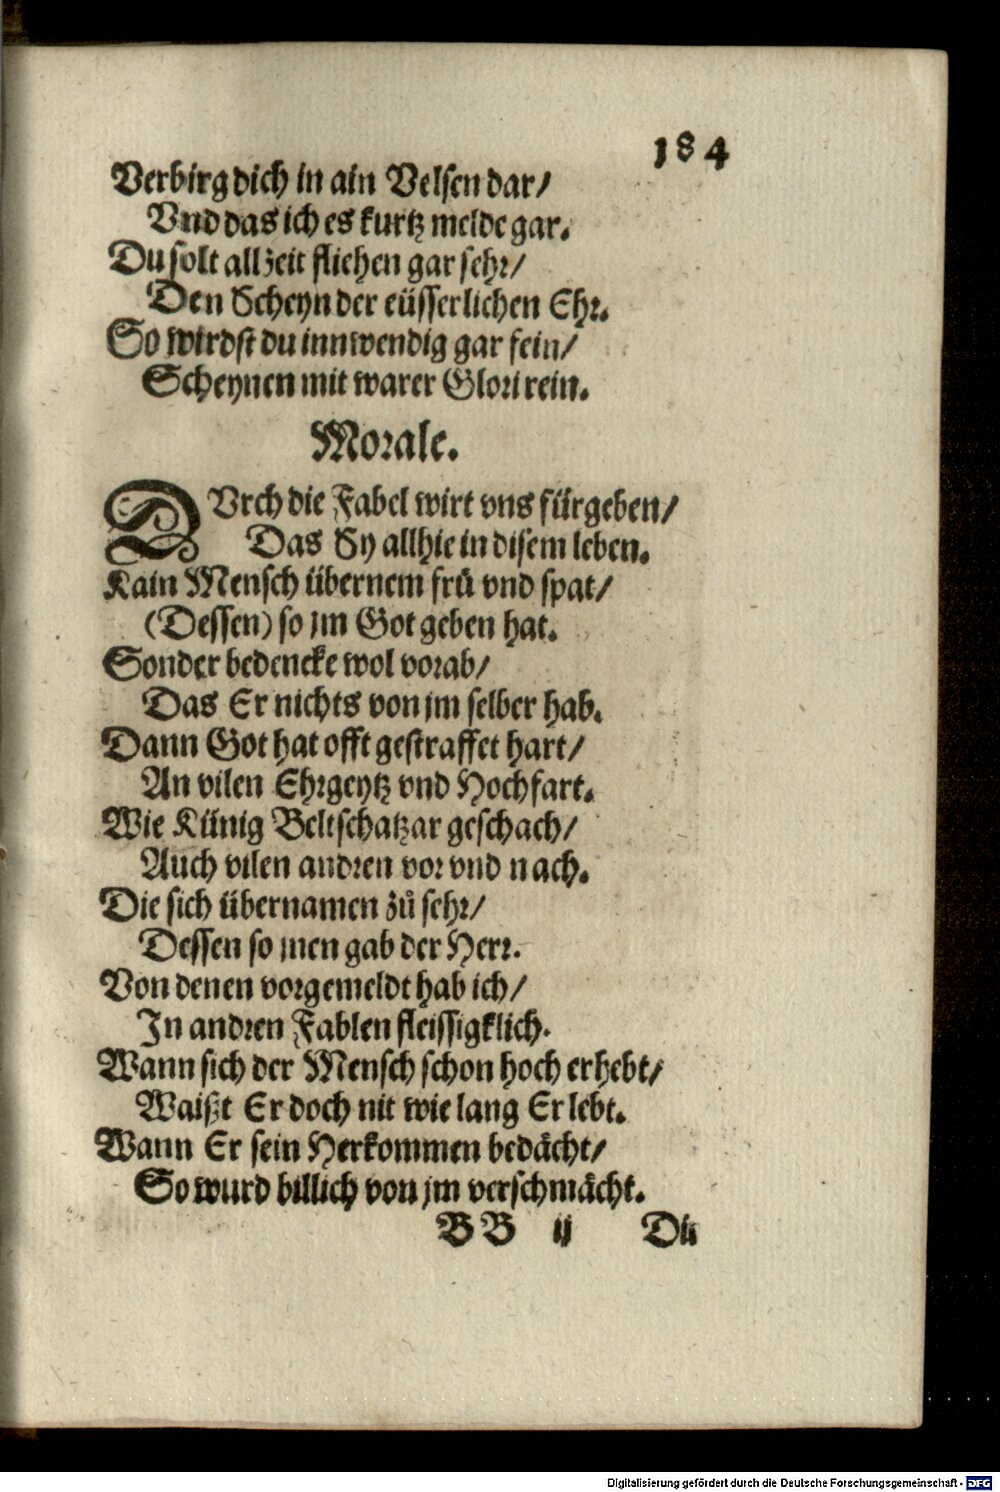 184
Verbirg dich in ain Velsen dar/
Vnd das ich es kurtz melde gar.
Du solt allzeit fliehen gar sehr/
Den Scheyn der eüsserlichen Ehr.
So wirdst du innwendig gar fein/
Scheynen mit warer Glori rein.
Morale.
DVrch die Fabel wirt vns fürgeben/
Das Sy allhie in disem leben.
Kain Mensch übernem frů vnd spat/
(Dessen) so jm Got geben hat.
Sonder bedencke wol vorab/
Das Er nichts von jm selber hab.
Dann Got hat offt gestraffet hart/
An vilen Ehrgeytz vnd Hochfart.
Wie Künig Beltschatzar geschach/
Auch vilen andren vor vnd nach.
Die sich übernamen zů sehr/
Dessen so jnen gab der Herr.
Von denen vorgemeldt hab ich/
In andren Fablen fleissigklich.
Wann sich der Mensch schon hoch erhebt/
Waißt Er doch nit wie lang Er lebt.
Wann Er sein Herkommen bedächt/
So wurd billich von jm verschmächt.
BB ij Du
Digitalisierung gefördert durch die Deutsche Forschungsgemeinschaft - DFG